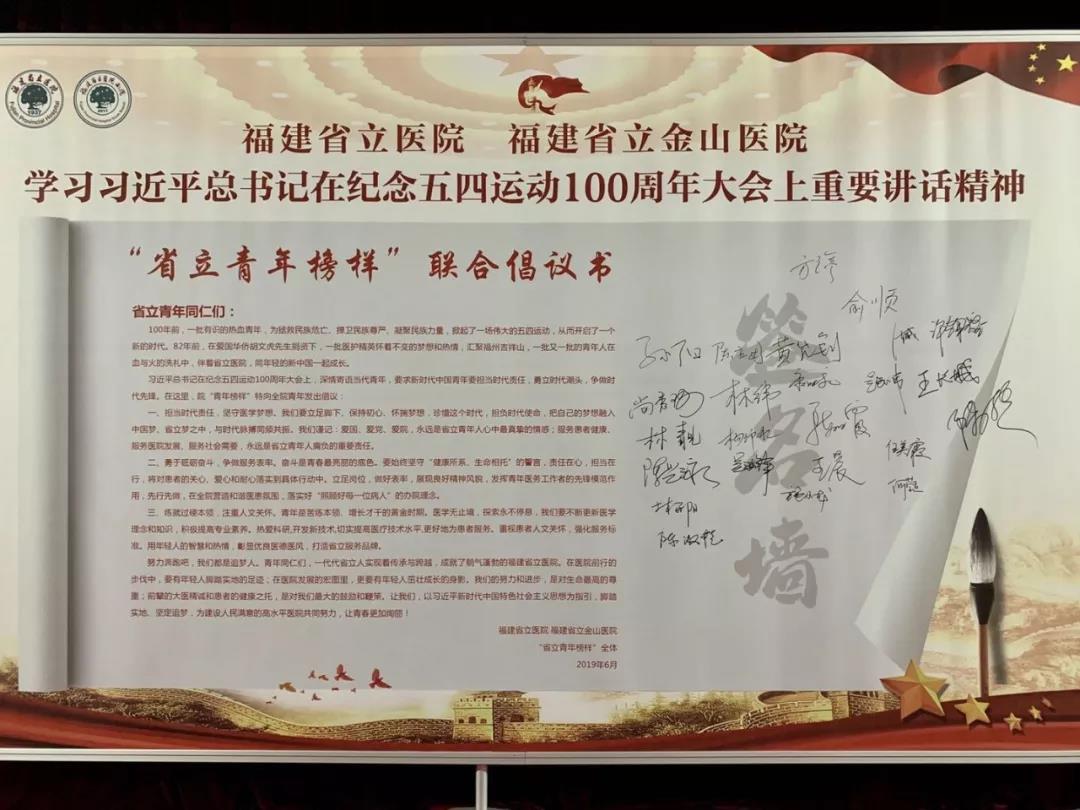 福建省立医院 福建省立金山医院
学习习近平总书记在纪念五四运动100周年大会上重要讲话精神
“省立青年榜样”联合倡议书
省立青年同仁们：
100年前，一批有识的热血青年，为拯救民族危亡、捍卫民族尊严、凝聚民族力量，掀起了一场伟大的五四运动，从而开启了一个
新的时代。82年前，在爱国华侨胡文虎先生捐资下，一批医护精英怀着不变的梦想和热情，汇聚福州吉祥山，一批又一批的青年人在
血与火的洗礼中，伴着省立医院，同年轻的新中国一起成长。
习近平总书记在纪念五四运动100周年大会上，深情寄语当代青年，要求新时代中国青年要担当时代责任，勇立时代潮头，争做时
代先锋。在这里，院“青年榜样”特向全院青年发出倡议：
一、担当时代责任，坚守医学梦想。我们要立足脚下、保持初心、怀揣梦想，珍惜这个时代，担负时代使命，把自己的梦想融入
中国梦、省立梦之中，与时代脉搏同频共振。我们谨记：爱国、爱党、爱院，永远是省立青年人心中最真挚的情感；服务患者健康、
服务医院发展、服务社会需要，永远是省立青年人肩负的重要责任。
二、勇于砥砺奋斗，争做服务表率。奋斗是青春最亮丽的底色。要始终坚守“健康所系、生命相托”的誓言，责任在心，担当在
行，将对患者的关心、爱心和耐心落实到具体行动中。立足岗位，做好表率，展现良好精神风貌，发挥青年医务工作者的先锋模范作
用，先行先做，在全院营造和谐医患氛围，落实好“照顾好每一位病人”的办院理念。
三、练就过硬本领，注重人文关怀。青年是苦练本领、增长才干的黄金时期。医学无止境，探索永不停息，我们要不断更新医学
理念和知识，积极提高专业素养。热爱科研，开发新技术，切实提高医疗技术水平，更好地为患者服务。重视患者人文关怀，强化服务标
准。用年轻人的智慧和热情，彰显优良医德医风，打造省立服务品牌。
努力奔跑吧，我们都是追梦人。青年同仁们，一代代省立人实现着传承与跨越，成就了朝气蓬勃的福建省立医院。在医院前行的
步伐中，要有年轻人脚踏实地的足迹；在医院发展的宏图里，更要有年轻人茁壮成长的身影。我们的努力和进步，是对生命最高的尊
重；前辈的大医精诚和患者的健康之托，是对我们最大的鼓励和鞭策。让我们，以习近平新时代中国特色社会主义思想为指引，脚踏
实地、坚定追梦，为建设人民满意的高水平医院共同努力，让青春更加绚丽！
福建省立医院 福建省立金山医院
“省立青年榜样”全体
2019年6月
签名墙
方婷
俞顺
林纬
王晨
福建省立医院
Fujian Provincial Hospital
1937